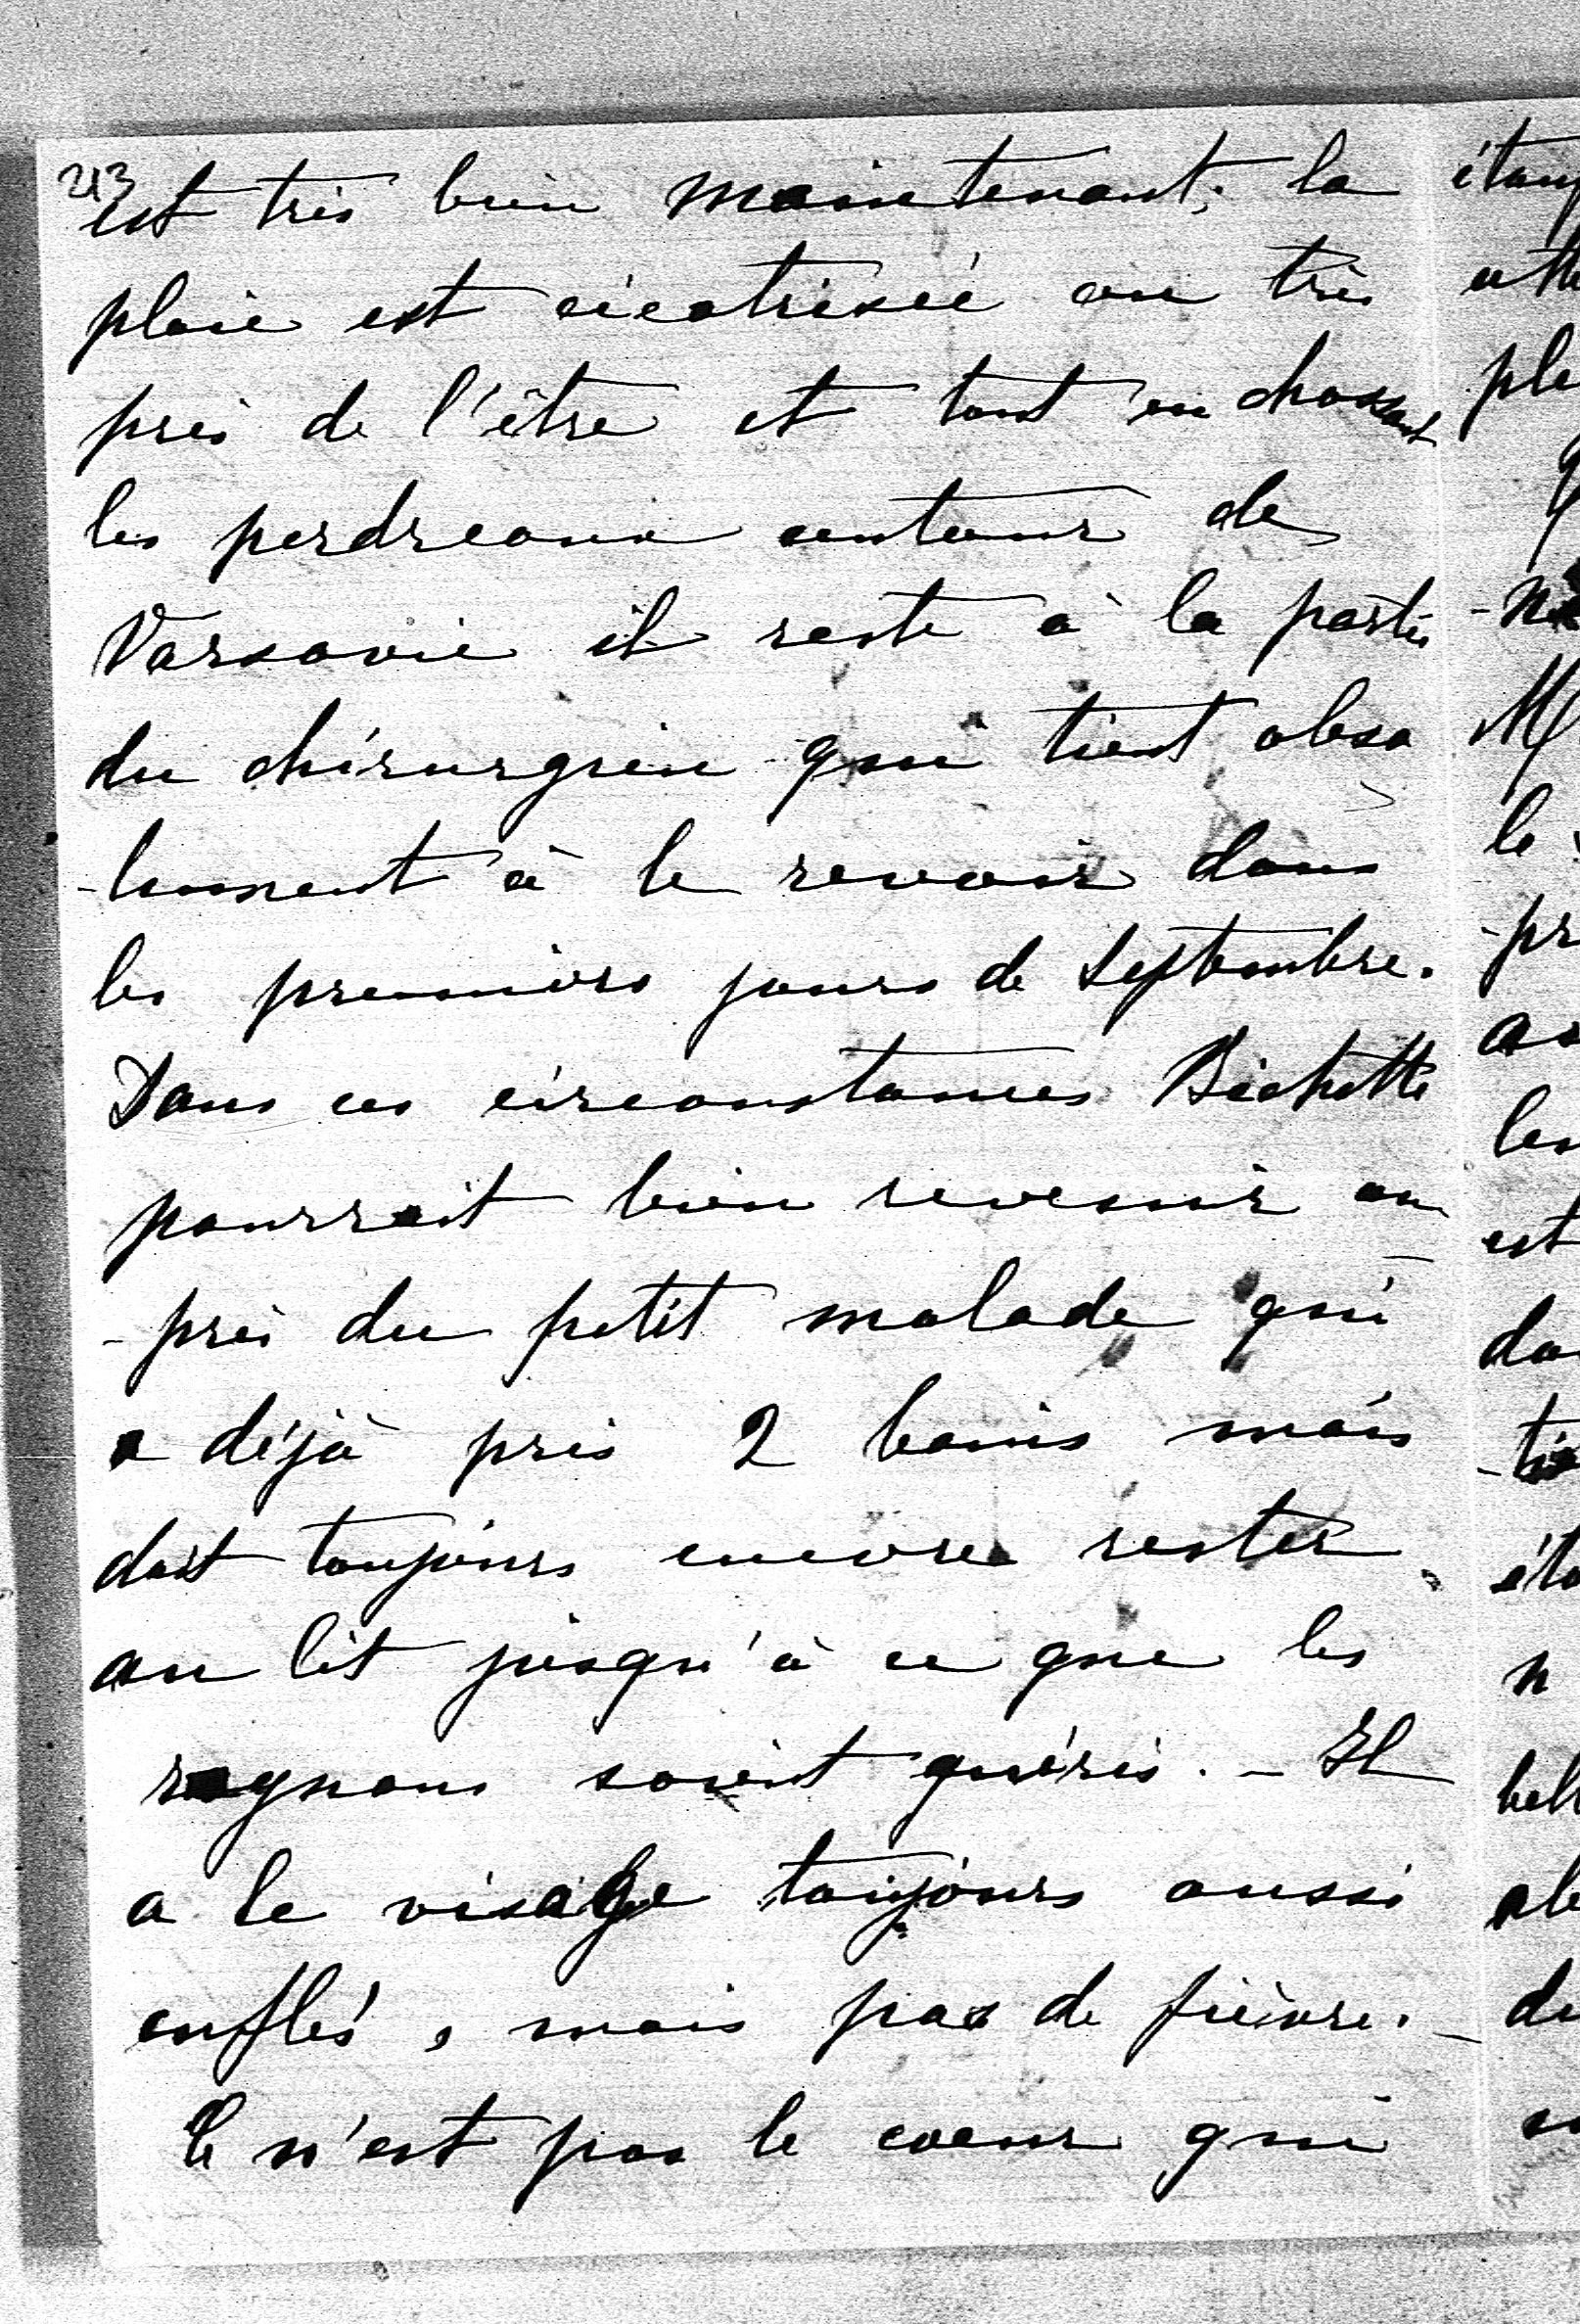 213
est très bien maintenant; la
plaie est cicatrisée ou très
près de l'être et tout en chassant
les perdreaux autour de
Varsovie il reste à la portée
du chirurgien qui tient abso
-lument à le revoir dans
les premiers jours de Septembre.
Dans ces circonstances Bichette
pourrait bien revenir au
-près du petit malade qui
a déjà pris 2 bains mais
doit toujours encore rester
au lit jusqu'à ce que les
rognons soient guéris. - Il
a le visage toujours aussi
enflé, mais pas de fièvre. -
Ce n'est pas le coeur qui